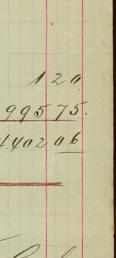 120
99575.
440206